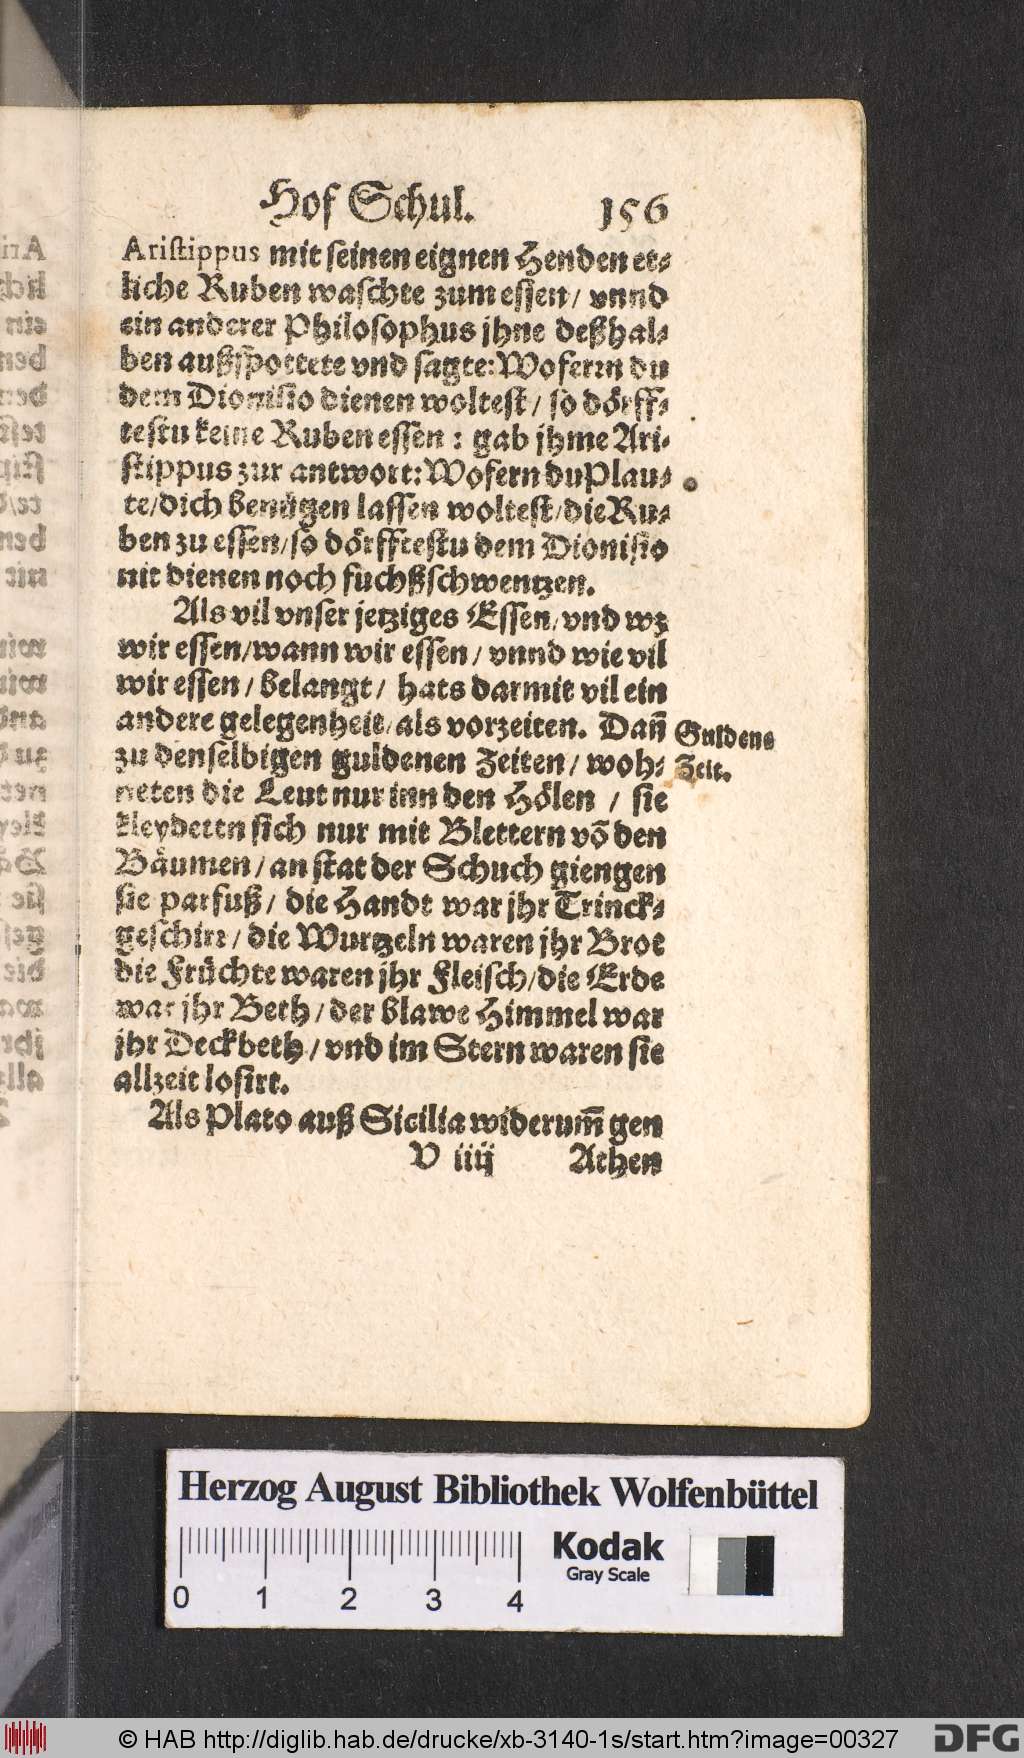 Hof Schul. 156
Aristippus mit seinen eignen Henden et⸗
liche Ruben waschte zum essen / vnnd
ein anderer Philosophus jhne deßhal⸗
ben außspottete vnd sagte: Wofern du
dem Dionisio dienen woltest / so dörff⸗
testu keine Ruben essen : gab jhme Ari⸗
stippus zur antwort: Wofern du Plau⸗
te/dich benügen lassen woltest/die Ru⸗
ben zu essen/so dörfftestu dem Dionisio
nit dienen noch fuchßschwentzen.
Als vil vnser jetziges Essen/vnd wz
wir essen/wann wir essen / vnnd wie vil
wir essen / belangt / hats darmit vil ein
andere gelegenheit/als vorzeiten. Dañ
zu denselbigen guldenen Zeiten / woh⸗
neten die Leut nur inn den Hölen / sie
kleydeten sich nur mit Blettern võ den
Bäumen / an stat der Schuch giengen
sie parfuß / die Handt war jhr Trinck⸗
geschirr / die Wurtzeln waren jhr Brot
die Früchte waren jhr Fleisch/die Erde
war jhr Beth / der blawe Himmel war
jhr Deckbeth / vnd im Stern waren sie
allzeit losirt.
Als Plato auß Sicilia widerum̃ gen
V iiij Athen
Guldene
Zeit.
Herzog August Bibliothek Wolfenbüttel
Kodak
Gray Scale
0 1 2 3 4
© HAB http://diglib.hab.de/drucke/xb-3140-1s/start.htm?image=00327
DFG